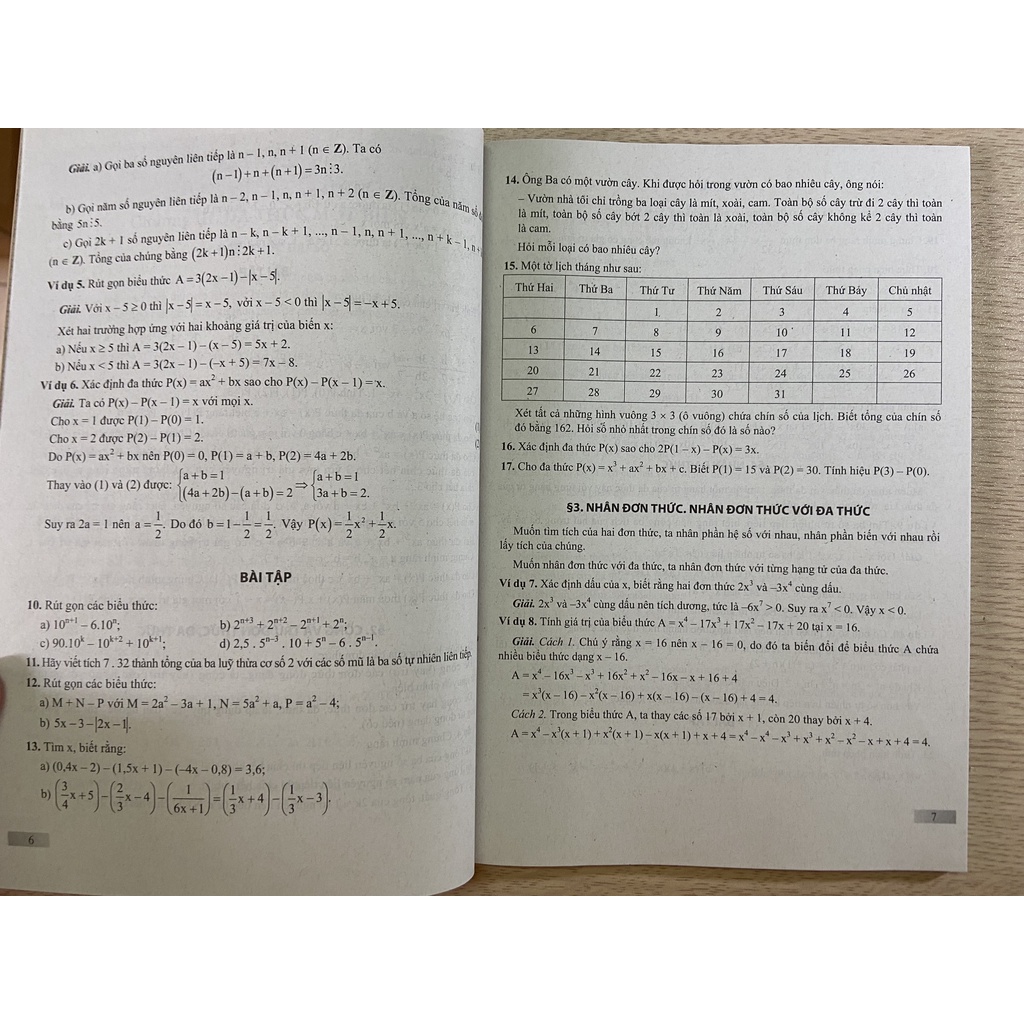 Giải. a) Gọi ba số nguyên liên tiếp là n – 1, n, n + 1 (n ∈ Z). Ta có
(n – 1) + n + (n + 1) = 3n⋮3.
b) Gọi năm số nguyên liên tiếp là n – 2, n – 1, n, n + 1, n + 2 (n ∈ Z). Tổng của năm số
bằng 5n⋮5.
c) Gọi 2k + 1 số nguyên liên tiếp là n – k, n – k + 1, ..., n – 1, n, n + 1, ..., n + k – 1, n +
(n ∈ Z). Tổng của chúng bằng (2k + 1)n⋮2k + 1.
Ví dụ 5. Rút gọn biểu thức A = 3(2x – 1) – |x – 5|.
Giải. Với x – 5 ≥ 0 thì |x – 5| = x – 5, với x – 5 < 0 thì |x – 5| = –x + 5.
Xét hai trường hợp ứng với hai khoảng giá trị của biến x:
a) Nếu x ≥ 5 thì A = 3(2x – 1) – (x – 5) = 5x + 2.
b) Nếu x < 5 thì A = 3(2x – 1) – (–x + 5) = 7x – 8.
Ví dụ 6. Xác định đa thức P(x) = ax² + bx sao cho P(x) – P(x – 1) = x.
Giải. Ta có P(x) – P(x – 1) = x với mọi x.
Cho x = 1 được P(1) – P(0) = 1. (1
Cho x = 2 được P(2) – P(1) = 2. (2
Do P(x) = ax² + bx nên P(0) = 0, P(1) = a + b, P(2) = 4a + 2b.
Thay vào (1) và (2) được: {a + b = 1; (4a + 2b) – (a + b) = 2 ⇒ {a + b = 1; 3a + b = 2.
Suy ra 2a = 1 nên a = 1/2. Do đó b = 1 – 1/2 = 1/2. Vậy P(x) = 1/2 x² + 1/2 x.
BÀI TẬP
10. Rút gọn các biểu thức:
a) 10ⁿ⁺¹ – 6.10ⁿ; b) 2ⁿ⁺³ + 2ⁿ⁺² – 2ⁿ⁺¹ + 2ⁿ;
c) 90.10ᵏ – 10ᵏ⁺² + 10ᵏ⁺¹; d) 2,5 . 5ⁿ⁻³ . 10 + 5ⁿ – 6 . 5ⁿ⁻¹.
11. Hãy viết tích 7 . 32 thành tổng của ba luỹ thừa cơ số 2 với các số mũ là ba số tự nhiên liên tiếp.
12. Rút gọn các biểu thức:
a) M + N – P với M = 2a² – 3a + 1, N = 5a² + a, P = a² – 4;
b) 5x – 3 – |2x – 1|.
13. Tìm x, biết rằng:
a) (0,4x – 2) – (1,5x + 1) – (–4x – 0,8) = 3,6;
b) (3/4 x + 5) – (2/3 x – 4) – (1/(6x + 1)) = (1/3 x + 4) – (1/3 x – 3).
6
14. Ông Ba có một vườn cây. Khi được hỏi trong vườn có bao nhiêu cây, ông nói:
– Vườn nhà tôi chỉ trồng ba loại cây là mít, xoài, cam. Toàn bộ số cây trừ đi 2 cây thì toàn
là mít, toàn bộ số cây bớt 2 cây thì toàn là xoài, toàn bộ số cây không kể 2 cây thì toàn
là cam.
Hỏi mỗi loại có bao nhiêu cây?
15. Một tờ lịch tháng như sau:
Thứ Hai Thứ Ba Thứ Tư Thứ Năm Thứ Sáu Thứ Bảy Chủ nhật
1 2 3 4 5
6 7 8 9 10 11 12
13 14 15 16 17 18 19
20 21 22 23 24 25 26
27 28 29 30 31
Xét tất cả những hình vuông 3 × 3 (ô vuông) chứa chín số của lịch. Biết tổng của chín số
đó bằng 162. Hỏi số nhỏ nhất trong chín số đó là số nào?
16. Xác định đa thức P(x) sao cho 2P(1 – x) – P(x) = 3x.
17. Cho đa thức P(x) = x³ + ax² + bx + c. Biết P(1) = 15 và P(2) = 30. Tính hiệu P(3) – P(0).
§3. NHÂN ĐƠN THỨC. NHÂN ĐƠN THỨC VỚI ĐA THỨC
Muốn tìm tích của hai đơn thức, ta nhân phần hệ số với nhau, nhân phần biến với nhau rồi
lấy tích của chúng.
Muốn nhân đơn thức với đa thức, ta nhân đơn thức với từng hạng tử của đa thức.
Ví dụ 7. Xác định dấu của x, biết rằng hai đơn thức 2x³ và –3x⁴ cùng dấu.
Giải. 2x³ và –3x⁴ cùng dấu nên tích dương, tức là –6x⁷ > 0. Suy ra x⁷ < 0. Vậy x < 0.
Ví dụ 8. Tính giá trị của biểu thức A = x⁴ – 17x³ + 17x² – 17x + 20 tại x = 16.
Giải. Cách 1. Chú ý rằng x = 16 nên x – 16 = 0, do đó ta biến đổi để biểu thức A chứa
nhiều biểu thức dạng x – 16.
A = x⁴ – 16x³ – x³ + 16x² + x² – 16x – x + 16 + 4
= x³(x – 16) – x²(x – 16) + x(x – 16) – (x – 16) + 4 = 4.
Cách 2. Trong biểu thức A, ta thay các số 17 bởi x + 1, còn 20 thay bởi x + 4.
A = x⁴ – x³(x + 1) + x²(x + 1) – x(x + 1) + x + 4 = x⁴ – x⁴ – x³ + x³ + x² – x² – x + x + 4 = 4.
7